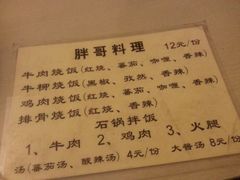 胖哥料理 12元/份
牛肉烧饭(红烧、蕃茄、咖喱、香辣)
牛柳烧饭(黑椒、孜然、香辣)
鸡肉烧饭(红烧、蕃茄、咖喱、香辣)
排骨烧饭(红烧、香辣)
石锅拌饭
1、牛肉 2、鸡肉 3、火腿
汤(蕃茄汤、酸辣汤) 4元/份 大酱汤 8元/份